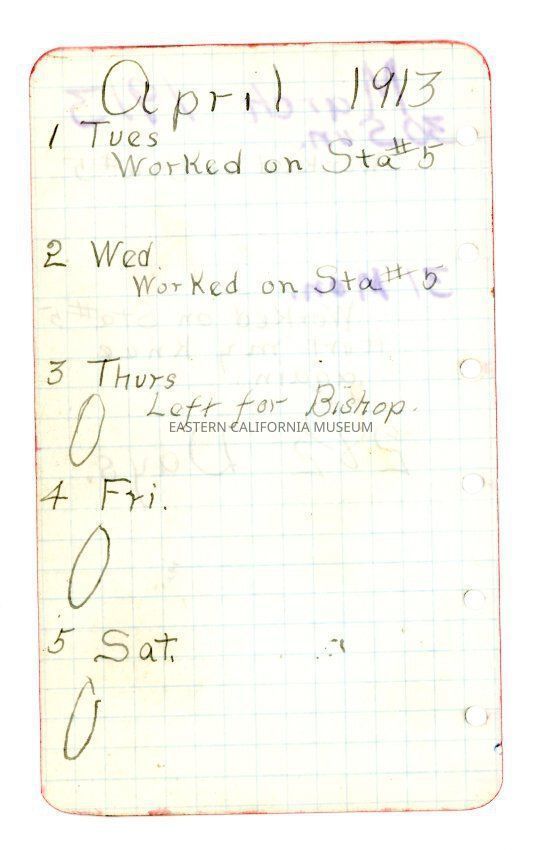 April 1913
1 Tues
Worked on Sta #5
2 Wed.
Worked on Sta # 5
3 Thurs
Left for Bishop.
0
EASTERN CALIFORNIA MUSEUM
4 Fri.
0
5 Sat.
0